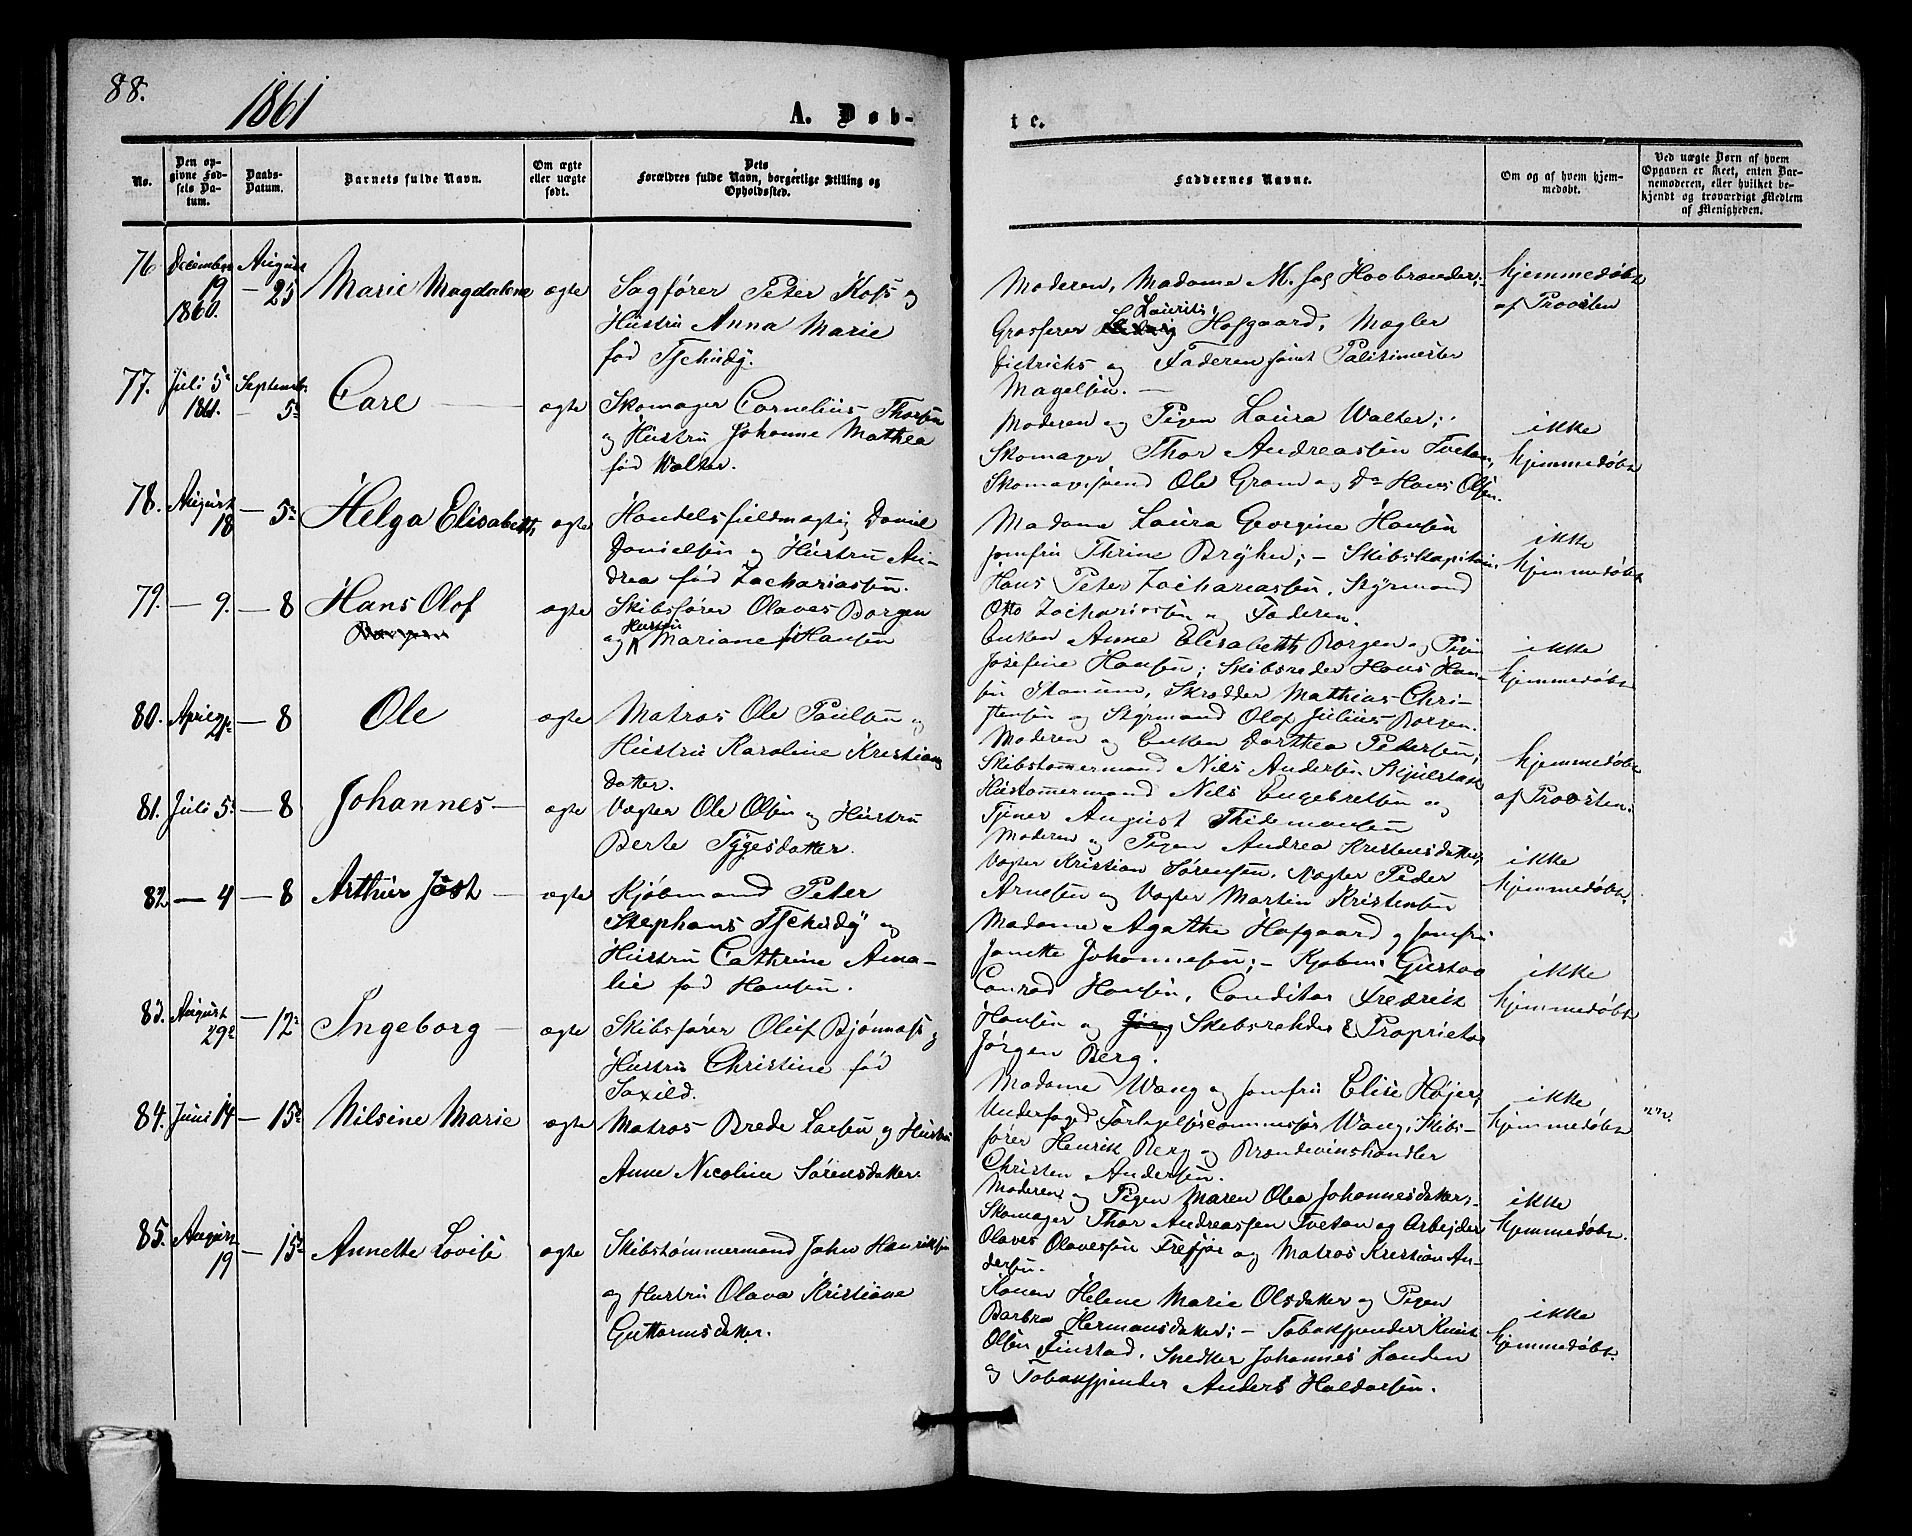 88.
1861
A. Døb-
te.
No.
Den op-
givne Fød-
sels Da-
tum.
Daabs-
Datum.
Barnets fulde Navn.
Om ægte
eller uægte
født.
Dets
Forældres fulde Navn, borgerlige Stilling og
Opholdssted.
Faddernes Navne.
Om og af hvem hjem-
medøbt.
Ved uægte Børn af hvem
Opgaven er skeet, enten Bar-
nemoderen, eller hvilket be-
kjendt og troværdigt Medlem
af Menigheden.
76 December 19 1860. August – 25 Marie Magdalene ægte
Sagfører Peter Koss og
Hustru Anna Marie
fød Tschudy.
Moderen, Madame M.
Grosserer Laurits Hofgaard, Mægler
Dietrichs og Faderen samt Politimester
Magelsen. —
hjemmedøbt
af Provsten
77. Juli 5te 1861. Septembr. – 5te Carl — ægte
Skomager Cornelius Thorsen
og Hustru Johanne Mathea
fød Walter.
Moderen og Pigen Laura Walter;
Skomager Thor Andreassen Tvetan,
Skomagersvend Ole Gran og Do Hans Olsen.
ikke
hjemmedøbt
78. August 18 — 5te Helga Elisabeth ægte
Handelsfuldmægtig Daniel
Danielsen og Hustru An-
drea fød Zachariassen.
Madame Laura Georgine Hansen
Jomfru Thrine Bryhn; – Skibskaptein
Hans Peter Zachariassen, Styrmand
Otto Zachariassen og Faderen.
ikke
hjemmedøbt
79. — 9. — 8 Hans Olof ægte
Borgen
Skibsfører Olaves Borgen
og Hustru Mariane f. Hansen
Enken Anne Elisabeth Borgen og Pigen
Josefine Hansen; Skibsreder Hans Han-
sen, Skrædder Mathias Chri-
stensen og Styrmand Olof Julius Borgen.
ikke
hjemmedøbt
80. April — 8 Ole ægte
Matros Ole Paulsen og
Hustru Karoline Kristians
datter.
Moderen og Enken Dorthea Pedersen;
Skibstømermand Nils Andersen
Hustømermand Nils Engebretsen og
Tjener August Thidemansen
hjemmedøbt
af Provsten.
81. Juli 5te — 8 Johannes — ægte
Vægter Ole Olsen og Hustru
Berte Tygesdatter.
Moderen og Pigen Andrea Kristensdatter,
Vægter Kristian Sørensen, Vægter Peder
Arnesen og Vægter Martin Kristensen
ikke
hjemmedøbt.
82 — 4 — 8 Arthur Jost — ægte
Kjøbmand Peter
Stephans Tschudy og
Hustru Cathrine Ama-
lie fød Hansen.
Madame Agathe Hofgaard og Jomfru
Janette Johannesen; – Kjøbm. Gustav
Conrad Hansen, Conditor Fredrik
Hansen og Skibsrheder & Proprietær
Jørgen Berg.
ikke
hjemmedøbt
83. August 29de — 12te Ingeborg — ægte
Skibsfører Oluf Bjønness og
Hustru Christine fød
Saxild.
Madame Wang og Jomfru Elise Højer,
Underfoged Forligelsescommissær Wang, Skibs-
fører Henrik Berg og Brændevinshandler
Christen Andersen.
ikke
hjemmedøbt
84. Juni 14 — 15de Nilsine Marie ægte
Matros Brede Larsen og Hustru
Anne Nicoline Sørensdatter.
Moderen og Pigen Maren Olea Johannesdatter,
Skomager Thor Andreassen Tvetan og Arbejder
Olaves Olavessen og Matros Kristian An-
dersen.
ikke
hjemmedøbt.
85. August 19 — 15de Annette Lovise ægte
Skibstømmermand John Henriksen
og Hustru Olava Kristiane
Guttormsdatter.
Konen Helene Marie Olsdatter og Pigen
Barbra Hermansdatter; – Tobakspinder Knut
Olsen Finstad, Snedker Johannes Landen
og Tobakspinder Anders Haldorsen.
ikke
hjemmedøbt.